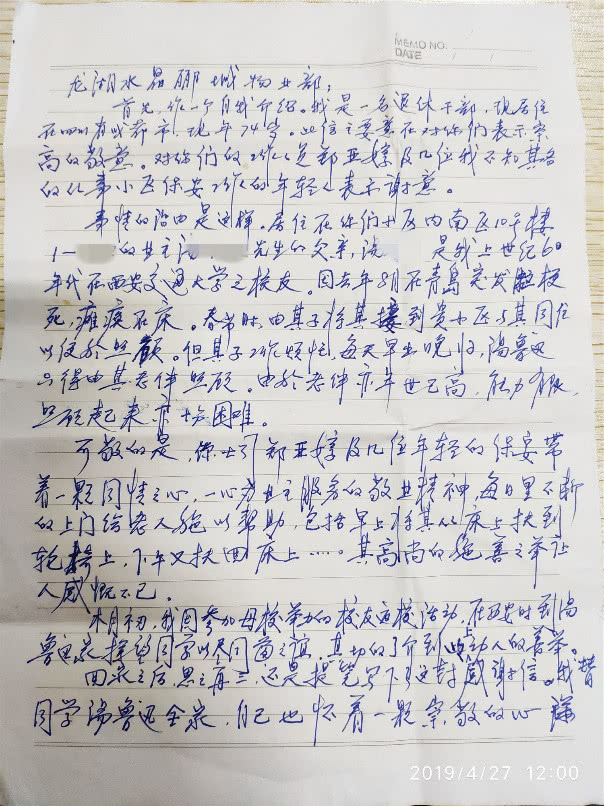 MEMO NO.
DATE / /
龙湖水晶郦城物业部：
首先，作一个自我介绍。我是一名退休干部，现居住
在四川省成都市，现年74岁。此信主要意在对你们表示崇
高的敬意。对你们的工作人员郑亚嫔及几位我不知其名
的从事小区保安工作的年轻人表示谢意。
事情的治由是这样。居住在你们小区内南区10号楼
1- 的业主汤 先生的父亲，汤 是我上世纪60
年代在西安交通大学之校友。因去年8月在青岛突发脑梗
死，瘫痪在床。春节时，由其子将其接到贵小区与其同住
以便於照顾。但其子工作烦忙，每天早出晚归，汤鲁迅
只得由其老伴照顾。由於老伴亦年世已高，能力有限，
照顾起来亦恼困难。
可敬的是，保士引郑亚嫔及几位年轻的保安带
着一颗同情之心，一心为业主服务的敬业精神，每日里不断
的上门给老人施以帮助，包括早上将其从床上扶到
轮椅上，下午又扶回床上……。其高尚的施善之举让
人感慨不已。
本月初，我因参加母校举办的校友返校活动，在西安时到汤
鲁迅家探望同学以尽同窗之谊，其切的了介到此上动人的善举。
回家之后，思之再三，还是提笔写下了这封感谢信。我替
同学汤鲁迅全家，自己也怀着一颗崇敬的心 谦
2019/4/27 12:00